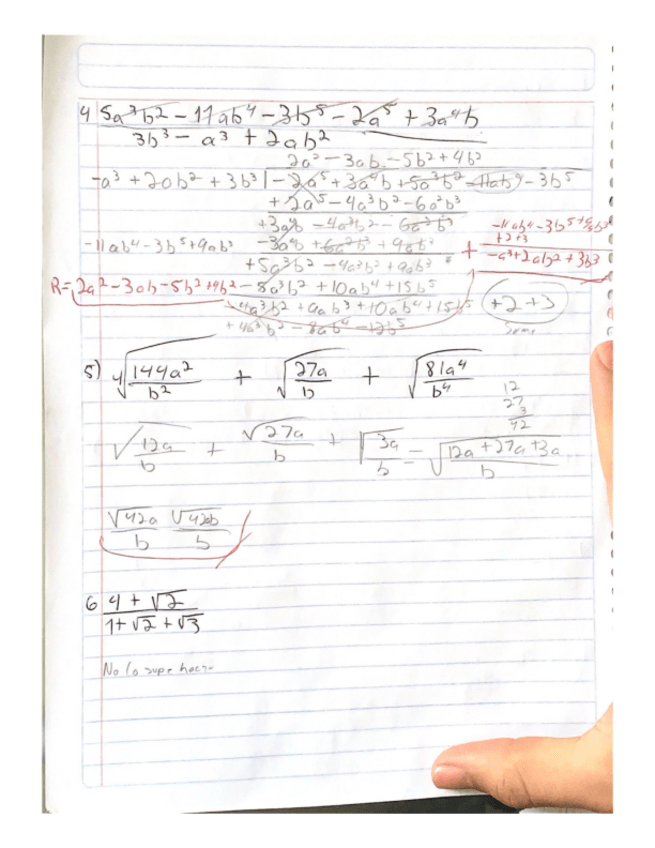 4 5a³b² - 11ab⁴ - 3b⁵ - 2a⁵ + 3a⁴b
3b³ - a³ + 2ab²
2a² - 3ab - 5b² + 4b²
-a³ + 2ab² + 3b³ | - 2a⁵ + 3a⁴b + 5a³b² - 11ab⁴ - 3b⁵
+ 2a⁵ - 4a³b² - 6a²b³
+3a⁴b - 4a³b² - 6a²b³
-11ab⁴ - 3b⁵ + 9ab³ - 3a⁴b + 6a²b³ + 9ab³
+2+3
+ -a³ + 2ab² + 3b³
+5a³b² - 4a³b² + 9ab³
R= 2a² - 3ab - 5b² + 4b² - 8a³b² + 10ab⁴ + 15b⁵
+2+3
- 4a³b² + 9ab³ + 10ab⁴ + 15b⁵
+ 4a³b² - 8ab⁴ - 12b⁵
5) ⁴√144a²/b² + √27a/b + √81a⁴/b⁴
12
27
3
42
√12a/b + √27a/b + √3a/b = √12a + 27a + 3a/b
√42a/b √42ab/b
6 4 + √2
1 + √2 + √3
No lo supe hacer